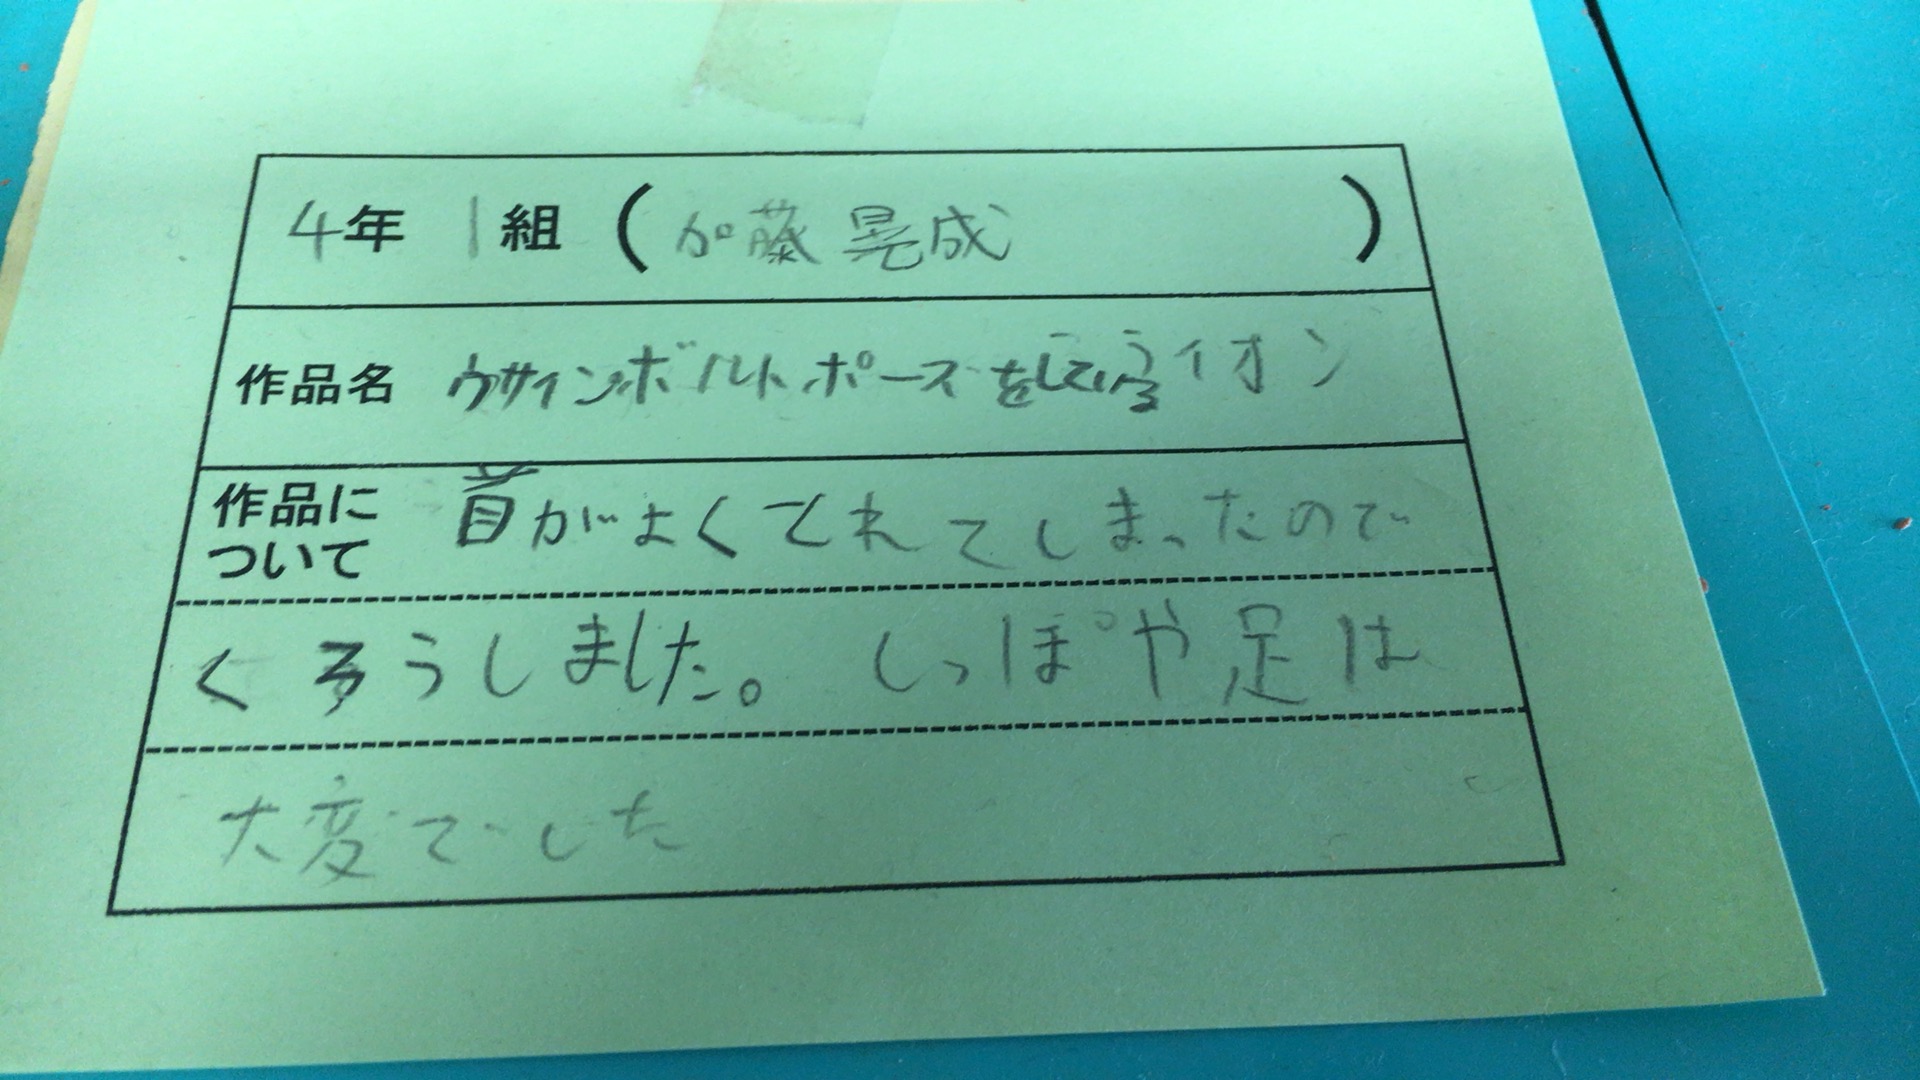 4年 1組 (加藤晃成)
作品名 ウサインボルトポーズをしているライオン
作品に
ついて
首がよくとれてしまったので
くろうしました。しっぽや足は
大変でした